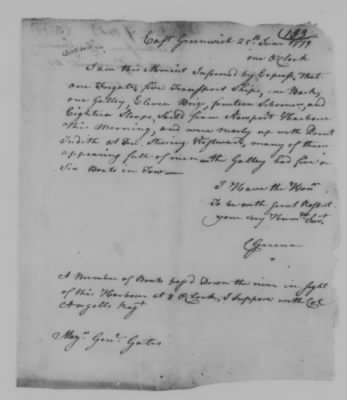 (193)
East Greenwich 25th June 1779
one O Clock
I am this Moment Informed by Express, that
one Frigate, five Transport Ships, one Bark,
one Galley, Eleven Brigs, fourteen Schooners, and
Eighteen Sloops, Sail'd from Newport Harbour
this Morning, and were nearly up with Point
Judith at Ten, Steering Westward, many of them
appearing full of men — the Galley had five or
Six Boats in Tow —
I Have the Honr
To be with great Respect
your very Humle Servt
C Greene
A Number of Boats pass'd Down the river in sight
of this Harbour at 8 O Clock, I Suppose with Col
Angells Regt
Majr Genl Gates